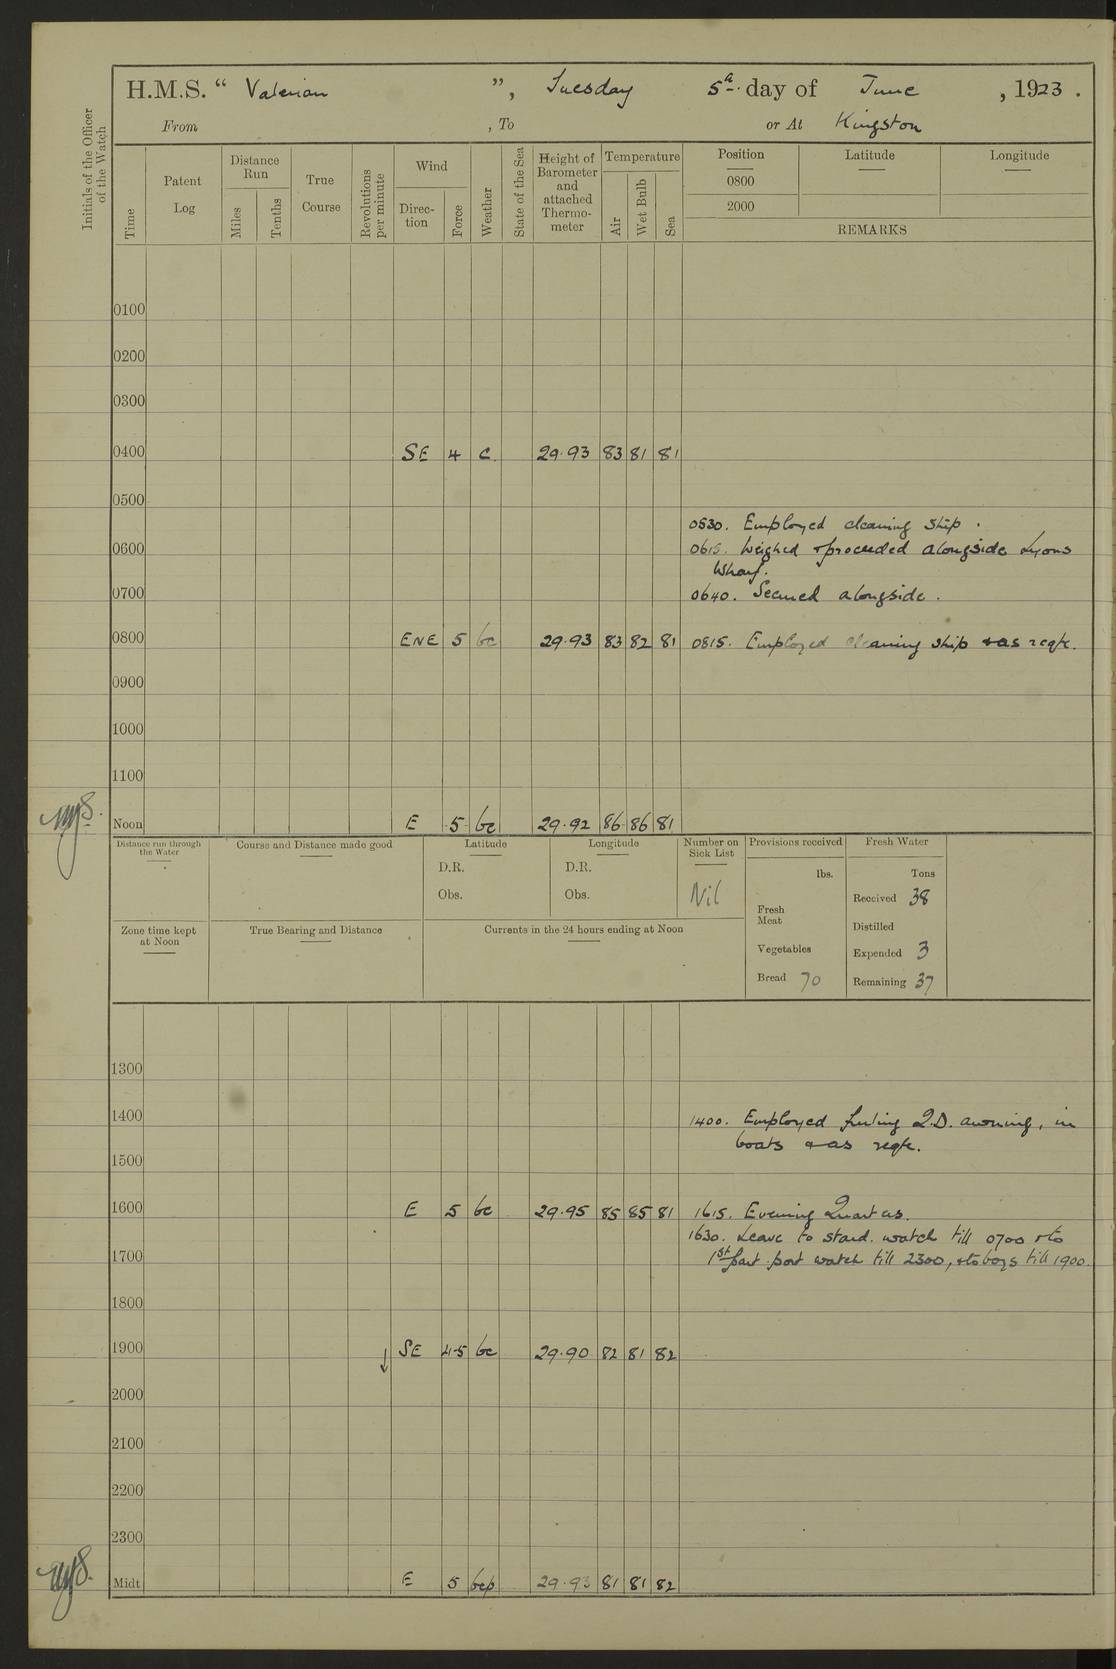 H.M.S. “ Valerian ”, Tuesday 5th. day of June , 1923 .
From , To or At Kingston
Initials of the Officer of the Watch
Time
Patent Log
Distance Run
Miles
Tenths
True Course
Revolutions per minute
Wind
Direc- tion
Force
Weather
State of the Sea
Height of Barometer and attached Thermo- meter
Temperature
Air
Wet Bulb
Sea
Position Latitude Longitude
0800
2000
REMARKS
0100
0200
0300
0400 SE 4 c. 29.93 83 81 81
0500
0530. Employed cleaning ship.
0600 0615. Weighed & proceeded alongside Lyons
Wharf.
0700 0640. Secured alongside.
0800 ENE 5 bc 29.93 83 82 81 0815. Employed cleaning ship & as reqte.
0900
1000
1100
Noon E 5 bc 29.92 86 86 81
Distance run through the Water
Course and Distance made good
Latitude
D.R.
Obs.
Longitude
D.R.
Obs.
Number on Sick List
Nil
Provisions received
lbs.
Fresh Meat
Vegetables
Bread 70
Fresh Water
Tons
Received 38
Distilled
Expended 3
Remaining 37
Zone time kept at Noon
True Bearing and Distance
Currents in the 24 hours ending at Noon
1300
1400 1400. Employed Q.D. awning, in
boats & as reqte.
1500
1600 E 5 bc 29.95 85 85 81 1615. Evening Quarters.
1630. Leave to stard. watch till 0700 & to
1700 1st part port watch till 2300, & to boys till 1900.
1800
1900 SE 4-5 bc 29.90 82 81 82
2000
2100
2200
2300
Midt E 5 bcp 29.93 81 81 82